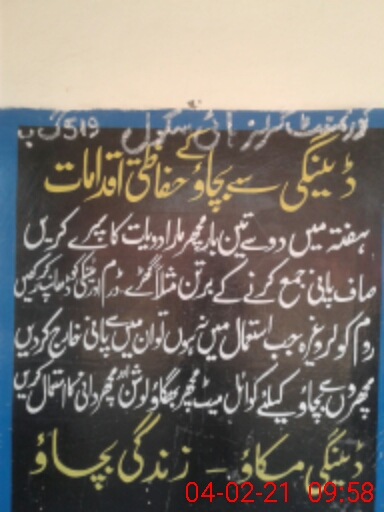 گورنمنٹ گرلز ہائی سکول 519 گ ب
ڈینگی سے بچاؤ کے حفاظتی اقدامات
ہفتہ میں دو سے تین بار مچھر مار ادویات کا سپرے کریں
صاف پانی جمع کرنے کے برتن مثلاً گھڑے ڈرم اور ٹینکی کو ڈھانپ کر رکھیں
روم کولر وغیرہ جب استعمال میں نہ ہوں تو ان میں سے پانی خارج کر دیں
مچھر سے بچاؤ کیلئے کوائل میٹ مچھر بھگاؤ لوشن اور مچھر دانی کا استعمال کریں
ڈینگی مکاؤ - زندگی بچاؤ
04-02-21 09:58